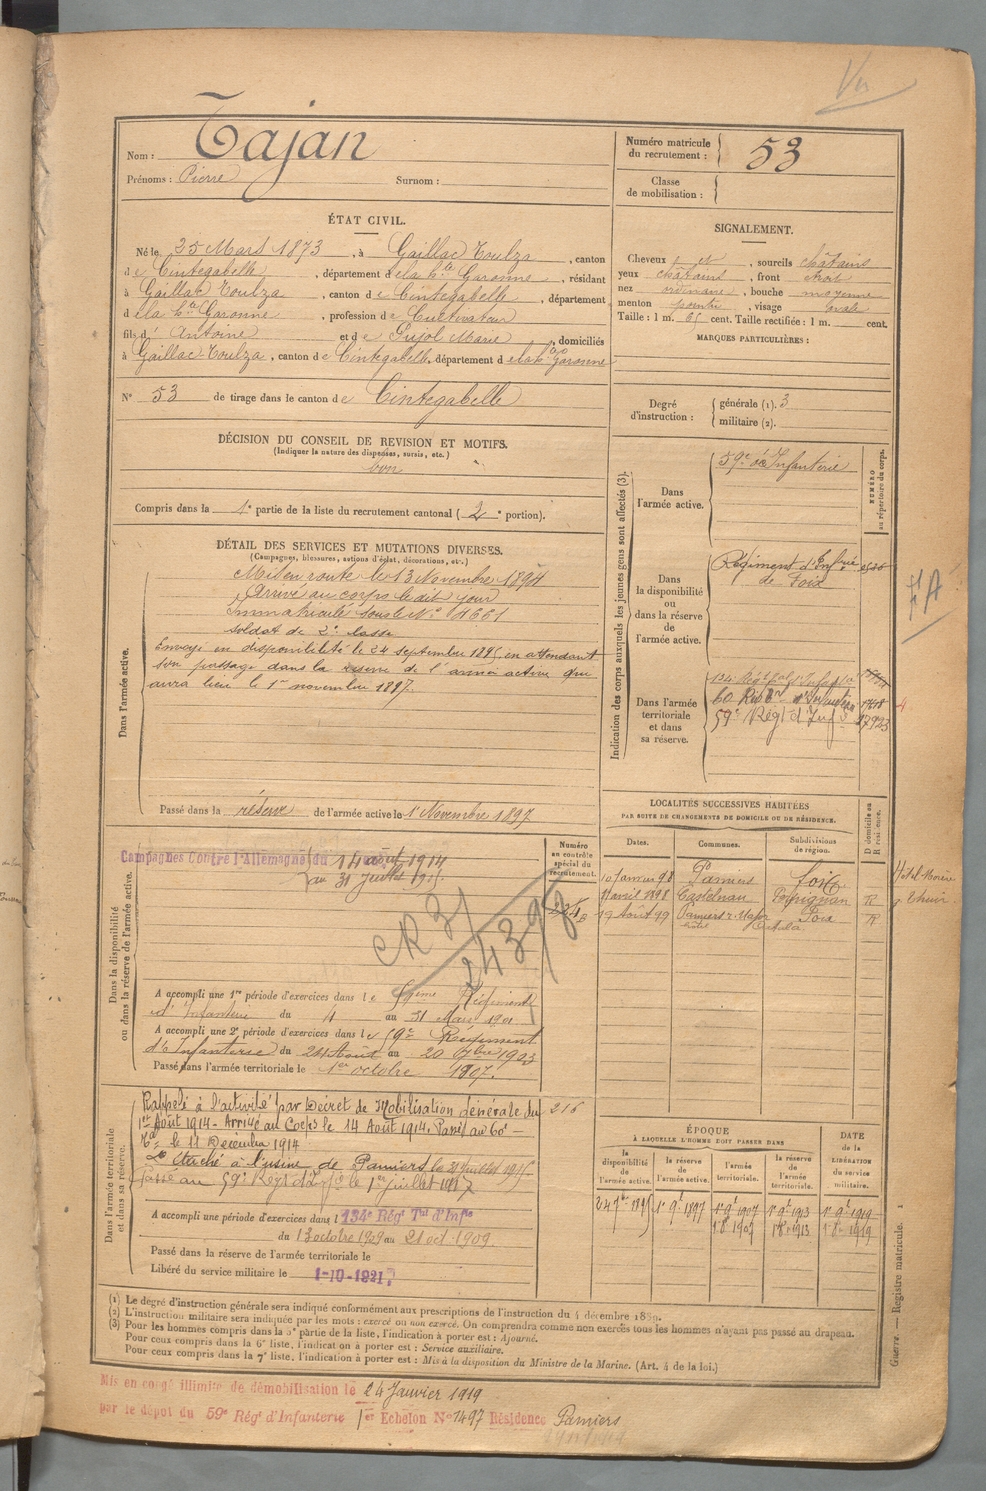 Vu
Nom : Tajan
Prénoms : Pierre Surnom :
Numéro matricule du recrutement : 53
Classe de mobilisation :
ÉTAT CIVIL.
Né le 25 Mars 1873, à Gaillac Toulza, canton
de Cintegabelle, département de la Hte Garonne, résidant
à Gaillac Toulza, canton de Cintegabelle, département
de la Hte Garonne, profession de Cultivateur
fils d'Antoine et de Pujol Marie, domiciliés
à Gaillac-Toulza, canton de Cintegabelle, département de la Hte Garonne
N° 53 de tirage dans le canton de Cintegabelle
SIGNALEMENT.
Cheveux et, sourcils châtains
yeux châtains, front étroit
nez ordinaire, bouche moyenne
menton pointu, visage ovale
Taille : 1 m. 65 cent. Taille rectifiée : 1 m. cent.
MARQUES PARTICULIÈRES :
Degré d'instruction : générale (1). 3
militaire (2).
DÉCISION DU CONSEIL DE REVISION ET MOTIFS.
(Indiquer la nature des dispenses, sursis, etc.)
bon
Compris dans la 1e partie de la liste du recrutement cantonal (2e portion).
DÉTAIL DES SERVICES ET MUTATIONS DIVERSES.
(Campagnes, blessures, actions d'éclat, décorations, etc.)
Dans l'armée active.
Mis en route le 13 Novembre 1894
Arrivé au corps le dit jour
Immatriculé sous le N° 4661
soldat de 2e classe
Envoyé en disponibilité le 24 septembre 1895 en attendant
son passage dans la réserve de l'armée active qui
aura lieu le 1er novembre 1897.
Passé dans la réserve de l'armée active le 1er Novembre 1897
Indication des corps auxquels les jeunes gens sont affectés (3).
NUMÉRO au répertoire du corps.
Dans l'armée active.
59e d'Infanterie
Dans la disponibilité ou dans la réserve de l'armée active.
Régiment d'Infrie
de Foix
Dans l'armée territoriale et dans sa réserve.
134 Régt tal Infrie
60 d'Infanterie
59e Régt d'Infie
LOCALITÉS SUCCESSIVES HABITÉES
PAR SUITE DE CHANGEMENTS DE DOMICILE OU DE RÉSIDENCE.
Dates. Communes. Subdivisions de région. D domicile ou R résidence.
10 Janvier 98 Pamiers Foix
avril 1898 Castelnau Perpignan R
19 Août 99 Pamiers r. Major Foix R
Dans la disponibilité ou dans la réserve de l'armée active.
Numéro au contrôle spécial du recrutement.
Campagnes Contre l'Allemagne du 14 août 1914
au 31 Juillet 1915
A accompli une 1re période d'exercices dans le Régiment
d'Infanterie du 4 au 31 Mars 1901
A accompli une 2e période d'exercices dans le 59e Régiment
d'Infanterie du 24 Août au 20 7bre 1903
Passé dans l'armée territoriale le 1er octobre 1907.
Dans l'armée territoriale et dans sa réserve.
Rappelé à l'activité par Décret de Mobilisation Générale du 216
1er Août 1914 - Arrivé au Corps le 14 Août 1914. Passé au 60e
Tal le 11 Décembre 1914
Détaché à l'usine de Pamiers le 31 Juillet 1915
Passé au 59e Régt d'Infie le 1er Juillet 1917
A accompli une période d'exercices dans le 134e Régt Tal d'Infie
du 13 octobre 1909 au 21 oct 1909
Passé dans la réserve de l'armée territoriale le
Libéré du service militaire le 1-10-1921.
ÉPOQUE
À LAQUELLE L'HOMME DOIT PASSER DANS
la disponibilité de l'armée active. la réserve de l'armée active. l'armée territoriale. la réserve de l'armée territoriale.
DATE de la LIBÉRATION du service militaire.
24 7bre 1895 1er 9e 1897 1er 9e 1907 1er 9e 1913 1er 9e 1919
1er 8e 1907 1er 8e 1913 1er 8e 1919
(1) Le degré d'instruction générale sera indiqué conformément aux prescriptions de l'instruction du 4 décembre 1889.
(2) L'instruction militaire sera indiquée par les mots : exercé ou non exercé. On comprendra comme non exercés tous les hommes n'ayant pas passé au drapeau.
(3) Pour les hommes compris dans la 5e partie de la liste, l'indication à porter est : Ajourné.
Pour ceux compris dans la 6e liste, l'indication à porter est : Service auxiliaire.
Pour ceux compris dans la 7e liste, l'indication à porter est : Mis à la disposition du Ministre de la Marine. (Art. 4 de la loi.)
Guerre. — Registre matricule. 1
Mis en congé illimité de démobilisation le 24 Janvier 1919
par le dépôt du 59e Régt d'Infanterie 1er Echelon N° 1497 Résidence Pamiers